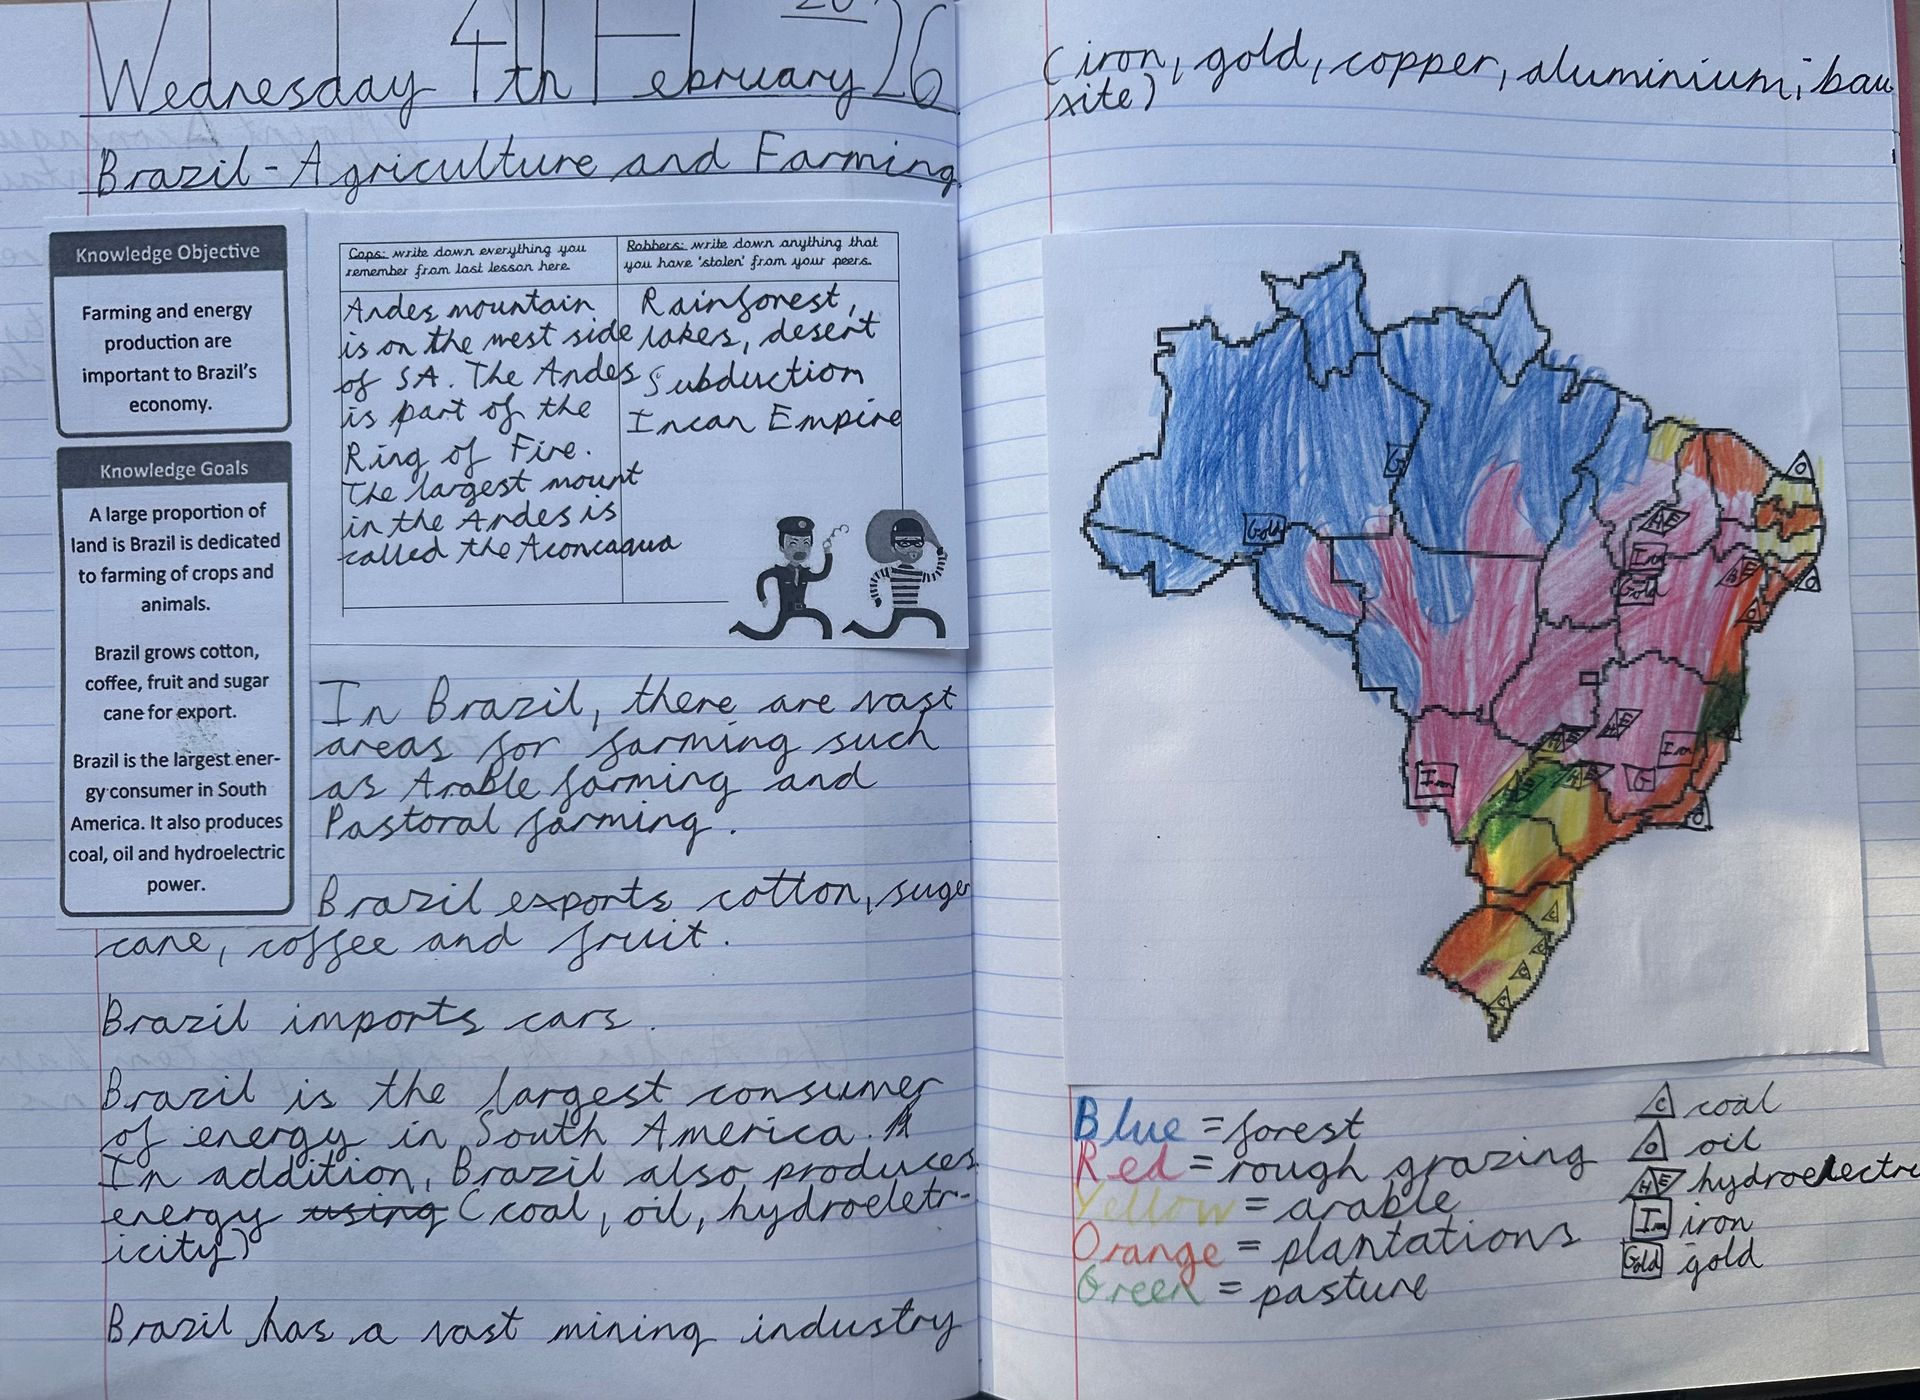 Wednesday 4th February 26
Brazil - Agriculture and Farming
Knowledge Objective
Farming and energy
production are
important to Brazil's
economy.
Knowledge Goals
A large proportion of
land is Brazil is dedicated
to farming of crops and
animals.
Brazil grows cotton,
coffee, fruit and sugar
cane for export.
Brazil is the largest ener-
gy consumer in South
America. It also produces
coal, oil and hydroelectric
power.
Cops: write down everything you
remember from last lesson here.
Andes mountain
is on the west side
of SA. The Andes
is part of the
Ring of Fire.
The largest mount
in the Andes is
called the Aconcagua
Robbers: write down anything that
you have 'stolen' from your peers.
Rainforest,
lakes, desert
Subduction
Incan Empire
In Brazil, there are vast
areas for farming such
as Arable farming and
Pastoral farming.
Brazil exports cotton, suger
cane, coffee and fruit.
Brazil imports cars.
Brazil is the largest consumer
of energy in South America.
In addition, Brazil also produces
energy using (coal, oil, hydroeletr-
icity)
Brazil has a vast mining industry
(iron, gold, copper, aluminium, bau
xite)
G
Gold
HE
Iron
Gold
HE
O
O
O
HE
HE
Iron
Iron
HE
G
O
C
C
C
C
Blue = forest
Red = rough grazing
Yellow = arable
Orange = plantations
Green = pasture
C coal
O oil
HE hydroelectri
Iron iron
Gold gold